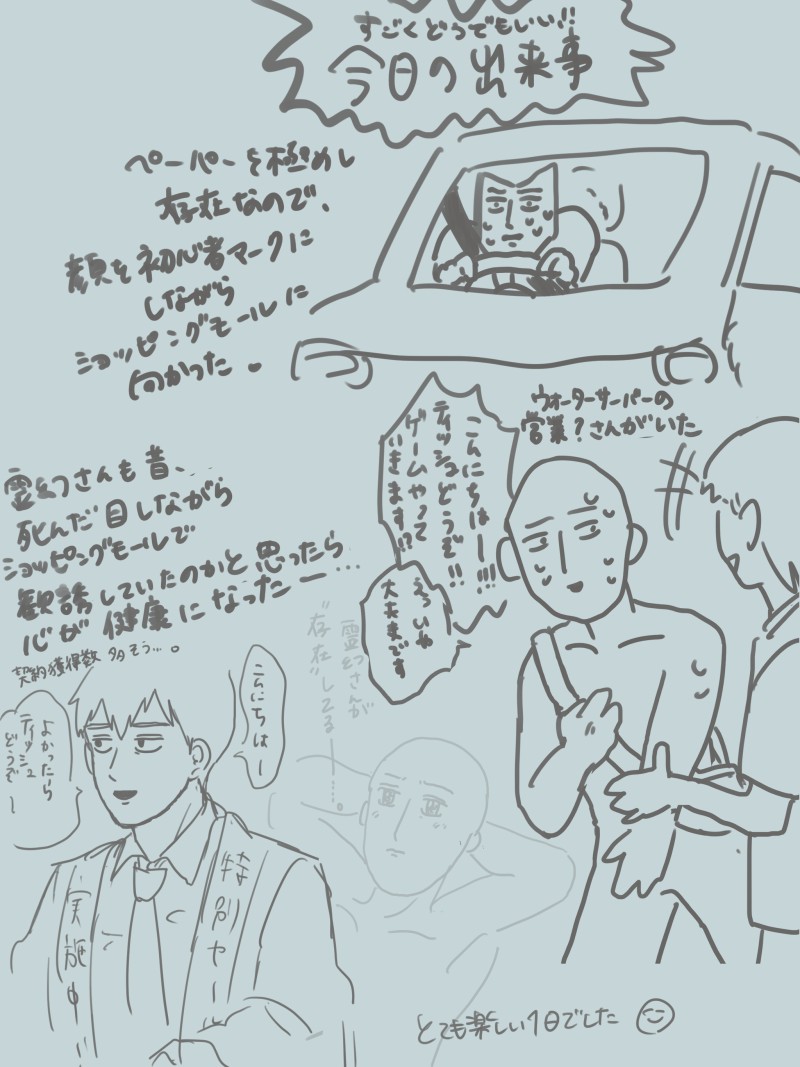 すごくどうでもいい!!
今日の出来事
ペーパーを極めし
存在なので、
顔を初心者マークに
しながら
ショッピングモールに
向かった。
ウォーターサーバーの
営業?さんがいた
こんにちはー!!!
ティッシュどうぞ!!
ゲームやって
いきます!?
えっいや
大丈夫です
霊幻さんも昔、…
死んだ目しながら
ショッピングモールで
観誘していたのかと思ったら
心が健康になったー…
契約獲得数 多そう…。
霊幻さんが
"存在"してる――……。
こんにちはー
よかったら
ティッシュ
どうぞー
特別セール
実施中
とても楽しい1日でした